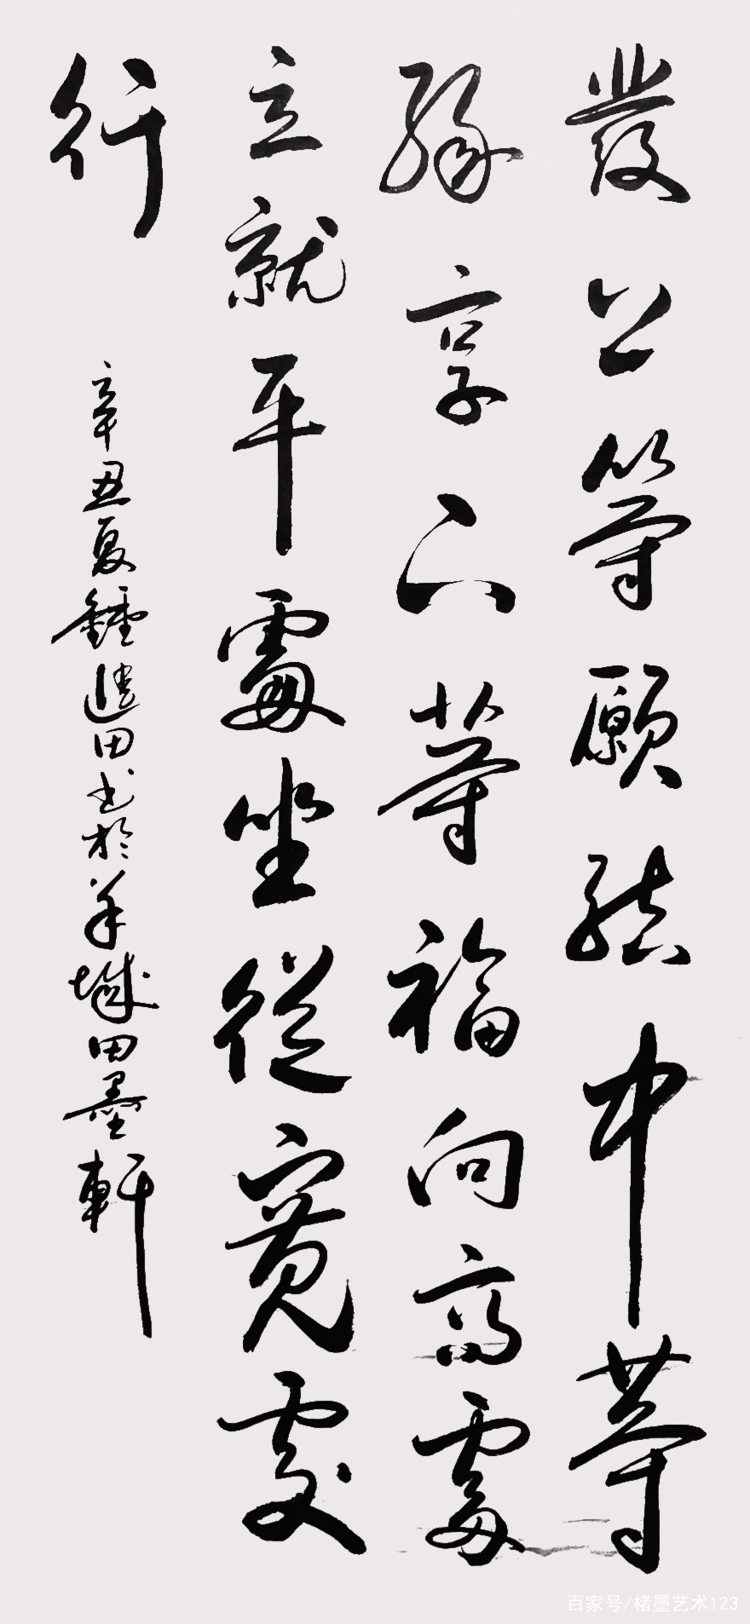 發上等願結中等
緣享下等福向高處
立就平處坐從寬處
行
辛丑夏鍾建田書於羊城田墨軒
百家号/楮墨艺术123